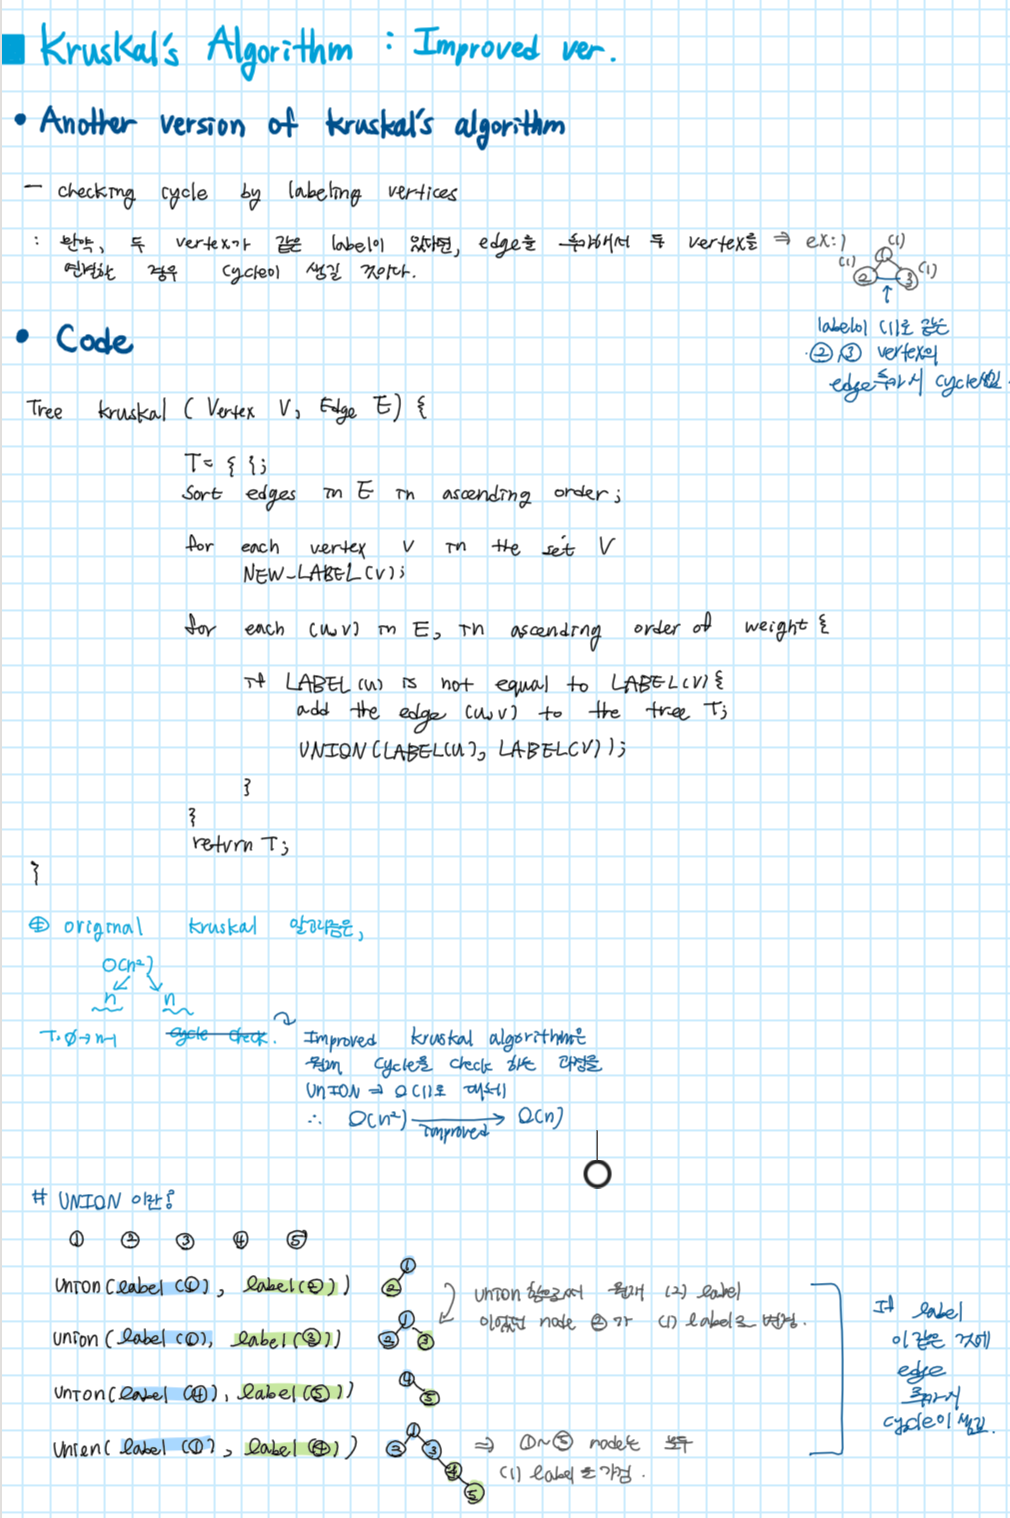 Kruskal's Algorithm : Improved ver.
• Another version of kruskal's algorithm
- checking cycle by labeling vertices
: 만약, 두 vertex가 같은 label이 있다면, edge를 추가해서 두 vertex를 ⇒ ex:)
연결한 경우 cycle이 생길 것이다.
(1)
①
(1) ② ③ (1)
label이 (1)로 같은
②,③ vertex의
edge 추가시 cycle생김.
• Code
Tree kruskal ( Vertex V, Edge E) {
T= { };
Sort edges in E in ascending order;
for each vertex v in the set V
NEW-LABEL(v);
for each (u,v) in E, in ascending order of weight {
if LABEL(u) is not equal to LABEL(v) {
add the edge (u,v) to the tree T;
UNION(LABEL(u), LABEL(v));
}
}
return T;
}
⊕ original kruskal 알고리즘은,
O(n²)
n n
T. ∅→n-1 cycle check.
Improved kruskal algorithm은
원래 cycle을 check 하는 과정을
UNION ⇒ Ω(1)로 대체!
∴ O(n²) → Ω(n)
improved
# UNION 이란?
① ② ③ ④ ⑤
union(label(①), label(②))
① ②
union 함으로써 원래 (2) label
이었던 node ②가 (1) label로 변경.
union(label(①), label(③))
① ② ③
union(label(④), label(⑤))
④ ⑤
union(label(①), label(④))
① ② ③ ④ ⑤
⇒ ①~⑤ node는 모두
(1) label을 가짐.
If label
이 같은 것에
edge
추가시
cycle이 생김.